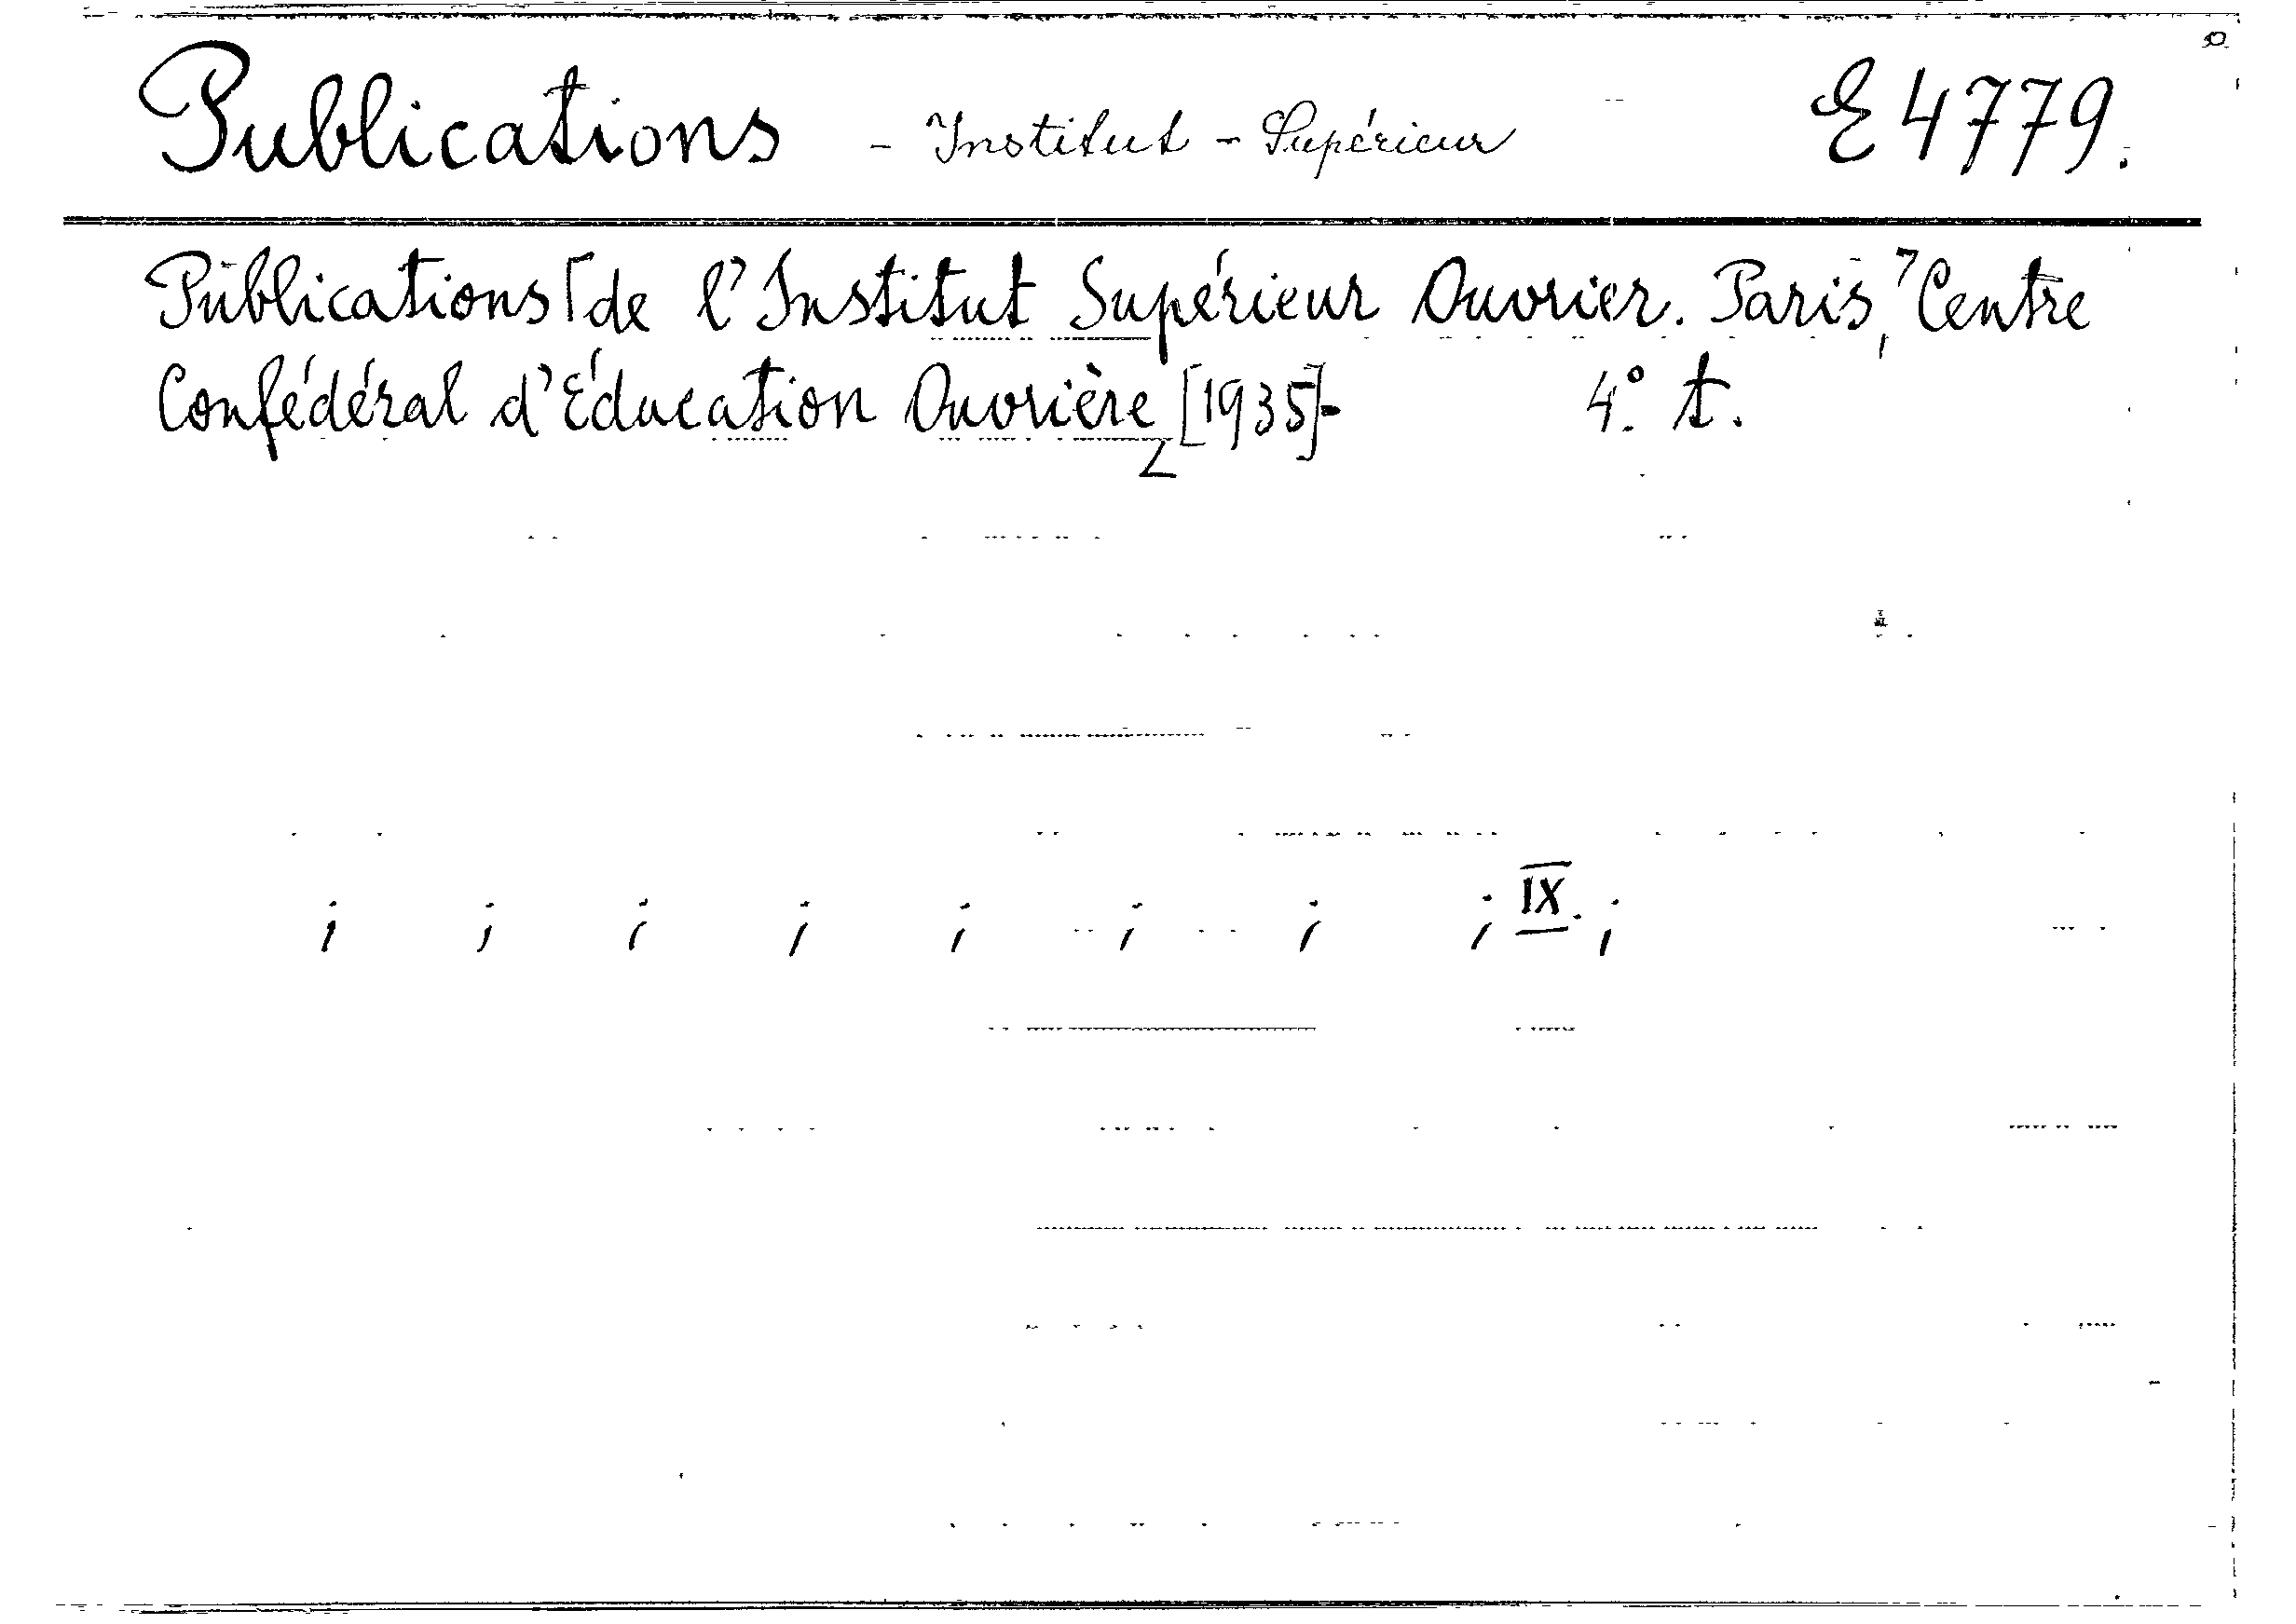 Publications - Institut - Supérieur E 4779.
Publications de l'Institut Supérieur Ouvrier. Paris, Centre
Confédéral d'Éducation Ouvrière [1935]- 4.º t.
; ; ; ; ; ; ; ; IX. ;